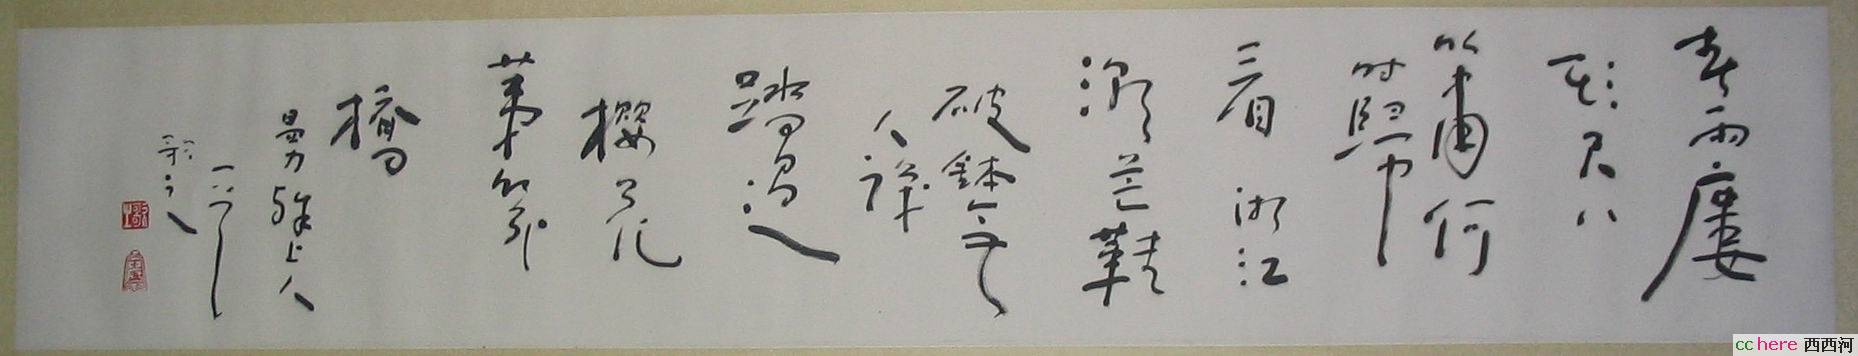 春雨廔
頭尺八
簫何
時歸
看浙江
潮芒鞋
破鉢無
人識
踏過
櫻花
第幾
橋
曼殊上人
cchere 西西河